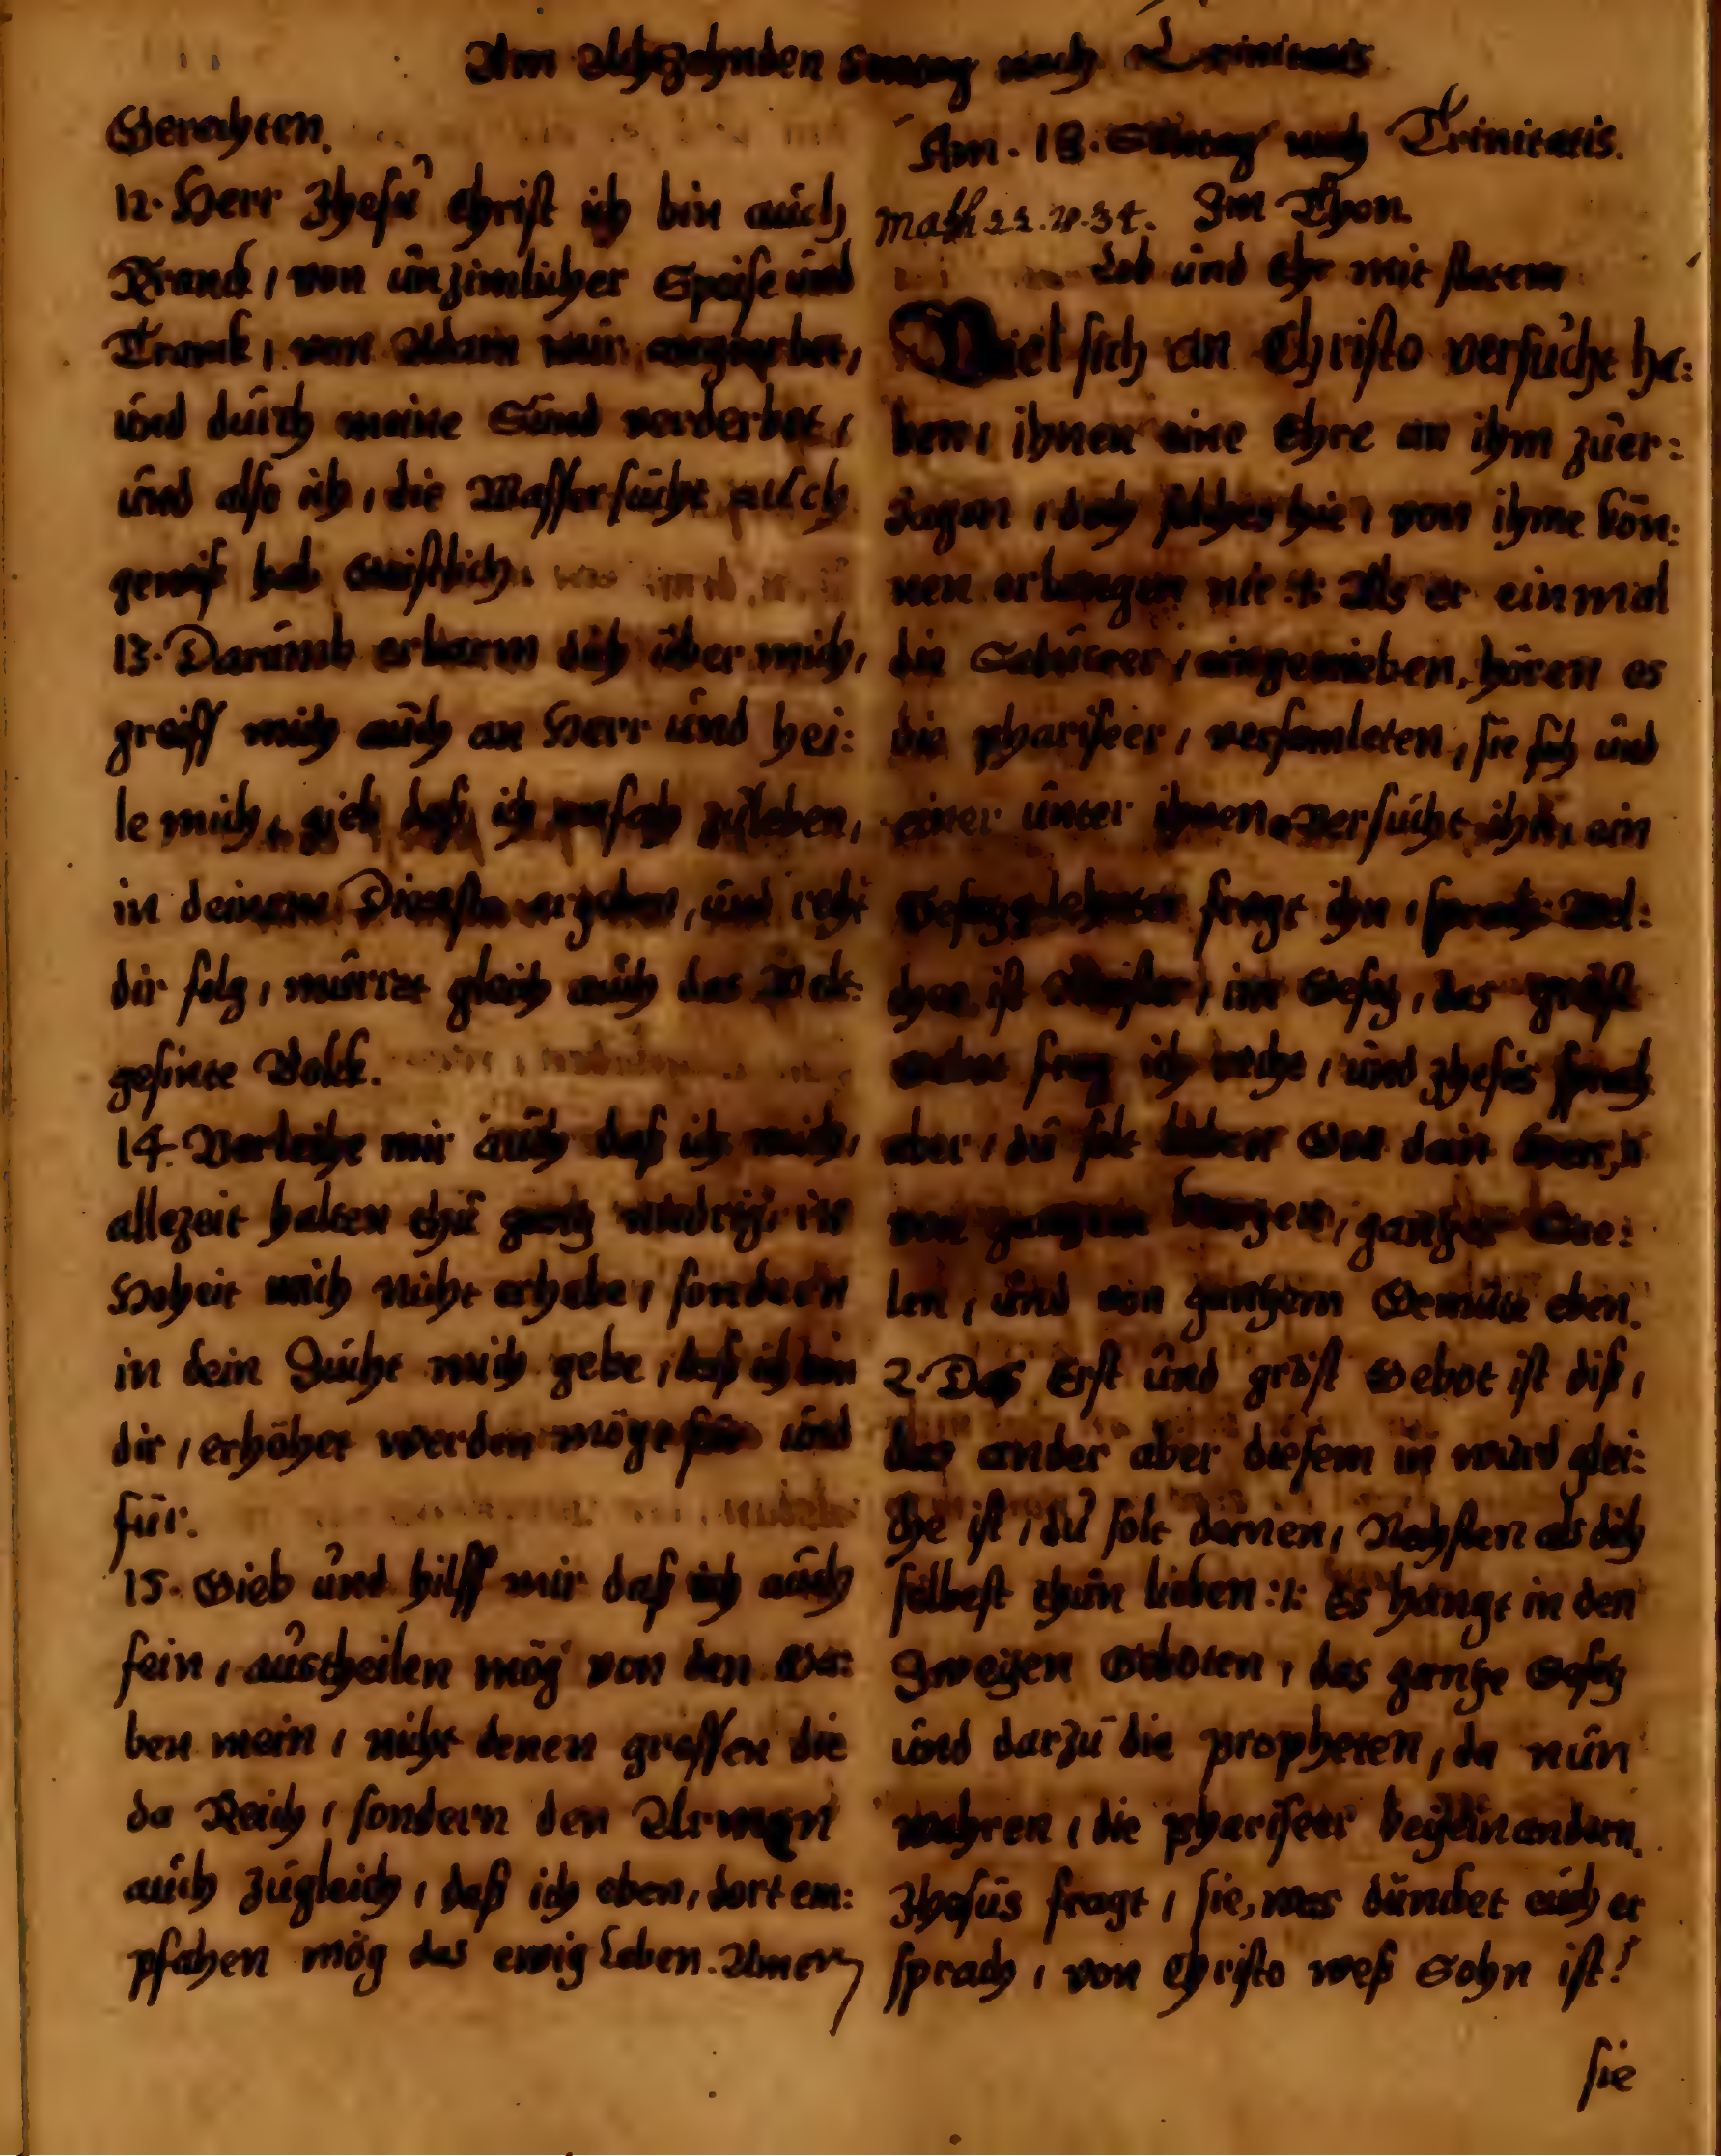 Am Achzehnden Sontag nach Trinitatis
Gerechten.
12. Herr Jhesu Christ ich bin auch
Kranck, von unzimlicher Speise und
Tranck, von Adam mir angeerbet,
und durch meine Sünd verderbet,
und also ich, die Wassersucht auch
gewiß hab Geistlich.
13. Darumb erbarm dich über mich,
greiff mich auch an Herr und hei:
le mich, gieb daß ich anfah zuleben,
in deinem Dienste ergeben, und recht
dir folg, murret gleich auch das Welt:
gesinte Volck.
14. Verleihe mir auch daß ich mich,
allezeit halten thu gantz nidrig, in
Hoheit mich nicht erhebe, sondern
in dein Zucht mich gebe, daß ich von
dir, erhöhet werden möge für und
für.
15. Gieb und hilff mir daß ich auch
fein, austheilen mög von den Ga:
ben mein, nicht denen grossen die
da Reich, sondern den Armen
auch zugleich, daß ich eben, dort em:
pfahen mög das ewig Leben. Amen
Am. 18. Suntag nach Trinitatis.
Math 22. v. 34. Im Thon.
Lob und Ehr mit stetem
Viel sich an Christo versucht ha:
ben, ihnen eine Ehre an ihm zuer:
Jagen, doch solches hie, von ihme kön:
nen erlangen nie :/: Als er einmal
die Saduceer, eingetrieben, hören es
die phariseer, versamleten, sie sich und
einer unter ihnen Versucht ihn, ein
Gesetzgelehrter fragt ihn, sprach: Wel:
ches ist Meister, im Gesetz, das gröst
frag ich recht, und Jhesus sprach
aber, du solt lieben Gott dein Herrn
von gantzem hertzen, gantzer See:
len, und von gantzem Gemüte eben.
2. Das Erst und gröst Gebot ist diß,
das ander aber diesem in würd glei:
che ist, du solt deinen, Nechsten als dich
selbest thun lieben :/: Es hangt in den
Zweyen Geboten, das gantze Gesetz
und darzu die propheten, da nun
wahren, die phariseer beyeinandern.
Jhesus fragt, sie, was düncket euch er
sprach, von Christo weß Sohn ist?
sie